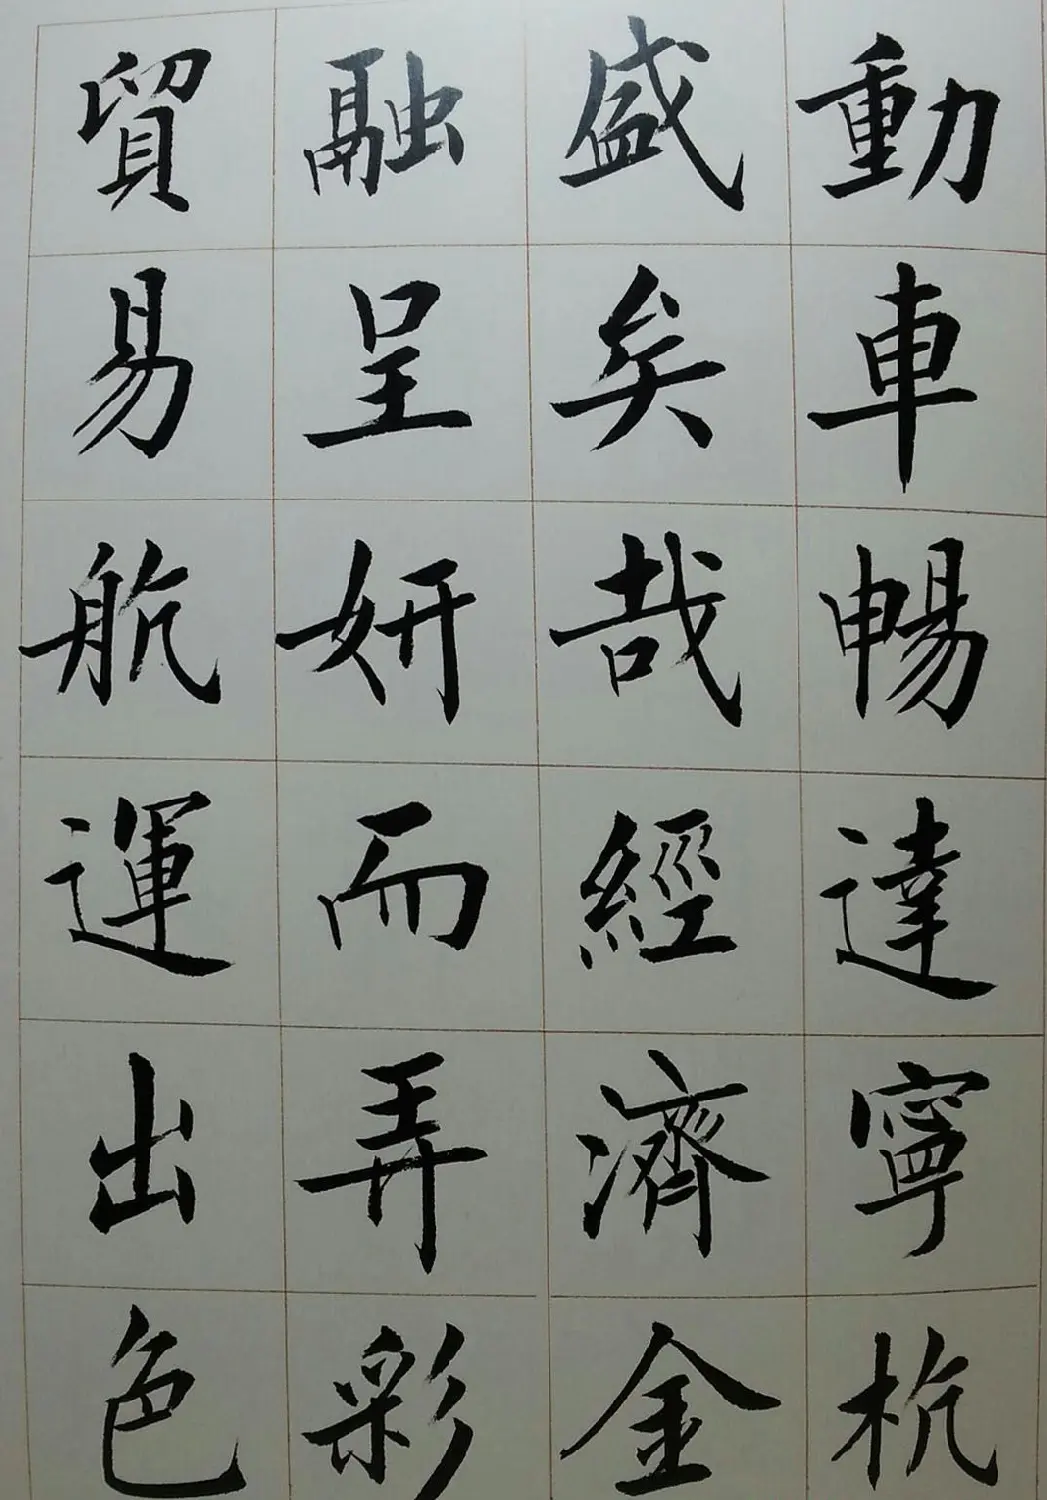 動車暢達寧杭
盛矣哉經濟金
融呈妍而弄彩
貿易航運出色